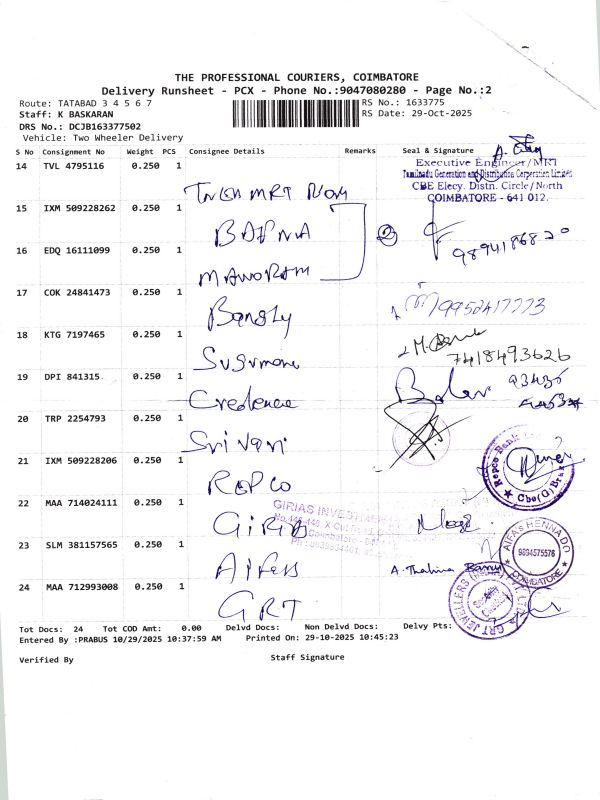 THE PROFESSIONAL COURIERS, COIMBATORE
Delivery Runsheet - PCX - Phone No.:9047080280 - Page No.:2
Route: TATABAD 3 4 5 6 7
RS No.: 1633775
Staff: K BASKARAN
RS Date: 29-Oct-2025
DRS No.: DCJB163377502
Vehicle: Two Wheeler Delivery
S No Consignment No Weight PCS Consignee Details Remarks Seal & Signature
14 TVL 4795116 0.250 1
Executive Engineer/MRT
Tamilnadu Generation and Distribution Corporation Limited
CBE Elecy. Distn. Circle/North
COIMBATORE - 641 012.
15 IXM 509228262 0.250 1
BAFNA
2
9894186820
16 EDQ 16111099 0.250 1
17 COK 24841473 0.250 1
9952417773
18 KTG 7197465 0.250 1
7418493626
19 DPI 841315 0.250 1
Credence
20 TRP 2254793 0.250 1
Sri Vari
21 IXM 509228206 0.250 1
REPCO
Repco Bank
Cbe(G) Br
22 MAA 714024111 0.250 1
Girias
GIRIAS INVESTMENT
Coimbatore
23 SLM 381157565 0.250 1
Aifas
A. Thahira Banu
AIFA's HENNA DO
9894575576
COIMBATORE
24 MAA 712993008 0.250 1
GRT
GRT JEWELLERS
Tot Docs: 24 Tot COD Amt: 0.00 Delvd Docs: Non Delvd Docs: Delvy Pts:
Entered By :PRABUS 10/29/2025 10:37:59 AM Printed On: 29-10-2025 10:45:23
Verified By Staff Signature